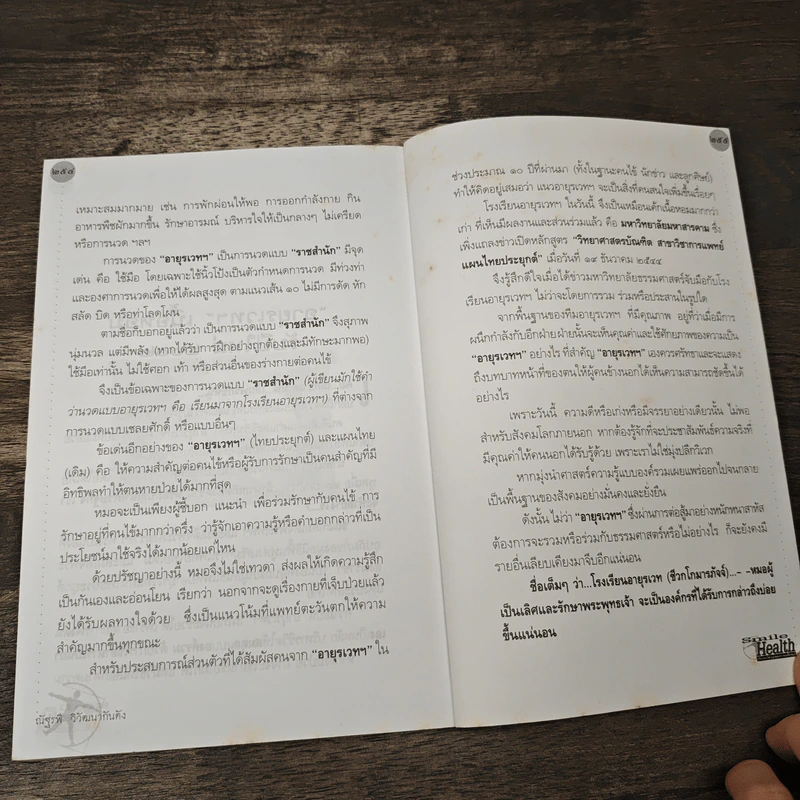 ๒๕๔
เหมาะสมมากมาย เช่น การพักผ่อนให้พอ การออกกำลังกาย กิน
อาหารพืชผักมากขึ้น รักษาอารมณ์ บริหารใจให้เป็นกลางๆ ไม่เครียด
หรือการนวด ฯลฯ
การนวดของ “อายุรเวทฯ” เป็นการนวดแบบ “ราชสำนัก” มีจุด
เด่น คือ ใช้มือ โดยเฉพาะใช้นิ้วโป้งเป็นตัวกำหนดการนวด มีท่วงท่า
และองศาการนวดเพื่อให้ได้ผลสูงสุด ตามแนวเส้น ๑๐ ไม่มีการดัด หัก
สลัด บิด หรือท่าโลดโผน
ตามชื่อก็บอกอยู่แล้วว่า เป็นการนวดแบบ “ราชสำนัก” จึงสุภาพ
นุ่มนวล แต่มีพลัง (หากได้รับการฝึกอย่างถูกต้องและมีทักษะมากพอ)
ใช้มือเท่านั้น ไม่ใช้ศอก เท้า หรือส่วนอื่นของร่างกายต่อคนไข้
จึงเป็นข้อเฉพาะของการนวดแบบ “ราชสำนัก” (ผู้เขียนมักใช้คำ
ว่านวดแบบอายุรเวทฯ คือ เรียนมาจากโรงเรียนอายุรเวทฯ) ที่ต่างจาก
การนวดแบบเชลยศักดิ์ หรือแบบอื่นๆ
ข้อเด่นอีกอย่างของ “อายุรเวทฯ” (ไทยประยุกต์) และแผนไทย
(เดิม) คือ ให้ความสำคัญต่อคนไข้หรือผู้รับการรักษาเป็นคนสำคัญที่มี
อิทธิพลทำให้ตนหายป่วยได้มากที่สุด
หมอจะเป็นเพียงผู้ชี้บอก แนะนำ เพื่อร่วมรักษากับคนไข้ การ
รักษาอยู่ที่คนไข้มากกว่าครึ่ง ว่ารู้จักเอาความรู้หรือคำบอกกล่าวที่เป็น
ประโยชน์มาใช้จริงได้มากน้อยแค่ไหน
ด้วยปรัชญาอย่างนี้ หมอจึงไม่ใช่เทวดา ส่งผลให้เกิดความรู้สึก
เป็นกันเองและอ่อนโยน เรียกว่า นอกจากจะดูเรื่องกายที่เจ็บป่วยแล้ว
ยังได้รับผลทางใจด้วย ซึ่งเป็นแนวโน้มที่แพทย์ตะวันตกให้ความ
สำคัญมากขึ้นทุกขณะ
สำหรับประสบการณ์ส่วนตัวที่ได้สัมผัสคนจาก “อายุรเวทฯ” ใน
ณัฐรพี วิวัฒนากันตัง
๒๕๕
ช่วงประมาณ ๑๐ ปีที่ผ่านมา (ทั้งในฐานะคนไข้ นักข่าว และลูกศิษย์)
ทำให้คิดอยู่เสมอว่า แนวอายุรเวทฯ จะเป็นสิ่งที่คนสนใจเพิ่มขึ้นเรื่อยๆ
โรงเรียนอายุรเวทฯ ในวันนี้ จึงเป็นเหมือนเค้กเนื้อหอมมากกว่า
เก่า ที่เห็นมีผลงานและส่วนร่วมแล้ว คือ มหาวิทยาลัยมหาสารคาม ซึ่ง
เพิ่งแถลงข่าวเปิดหลักสูตร “วิทยาศาสตรบัณฑิต สาขาวิชาการแพทย์
แผนไทยประยุกต์” เมื่อวันที่ ๑๙ ธันวาคม ๒๕๔๔
จึงรู้สึกดีใจเมื่อได้ข่าวมหาวิทยาลัยธรรมศาสตร์จับมือกับโรง
เรียนอายุรเวทฯ ไม่ว่าจะโดยการรวม ร่วมหรือประสานในรูปใด
จากพื้นฐานของทีมอายุรเวทฯ ที่มีคุณภาพ อยู่ที่ว่าเมื่อมีการ
ผนึกกำลังกับอีกฝ่ายฝ่ายนั้นจะเห็นคุณค่าและใช้ศักยภาพของความเป็น
“อายุรเวทฯ” อย่างไร ที่สำคัญ “อายุรเวทฯ” เองควรศรัทธาและจะแสดง
ถึงบทบาทหน้าที่ของตนให้ผู้คนข้างนอกได้เห็นความสามารถชัดขึ้นได้
อย่างไร
เพราะวันนี้ ความดีหรือเก่งหรือมีจรรยาอย่างเดียวนั้น ไม่พอ
สำหรับสังคมโลกภายนอก หากต้องรู้จักที่จะประชาสัมพันธ์ความจริงที่
มีคุณค่าให้คนนอกได้รับรู้ด้วย เพราะเราไม่ใช่มุ่งปลีกวิเวก
หากมุ่งนำศาสตร์ความรู้แบบองค์รวมเผยแพร่ออกไปจนกลาย
เป็นพื้นฐานของสังคมอย่างมั่นคงและยั่งยืน
ดังนั้น ไม่ว่า “อายุรเวทฯ” ซึ่งผ่านการต่อสู้มาอย่างหนักหนาสาหัส
ต้องการจะรวมหรือร่วมกับธรรมศาสตร์หรือไม่อย่างไร ก็จะยังคงมี
รายอื่นเลียบเคียงมาจีบอีกแน่นอน
ชื่อเต็มๆ ว่า...โรงเรียนอายุรเวท (ชีวกโกมารภัจจ์)...- -หมอผู้
เป็นเลิศและรักษาพระพุทธเจ้า จะเป็นองค์กรที่ได้รับการกล่าวถึงบ่อย
ขึ้นแน่นอน
Smile
Health